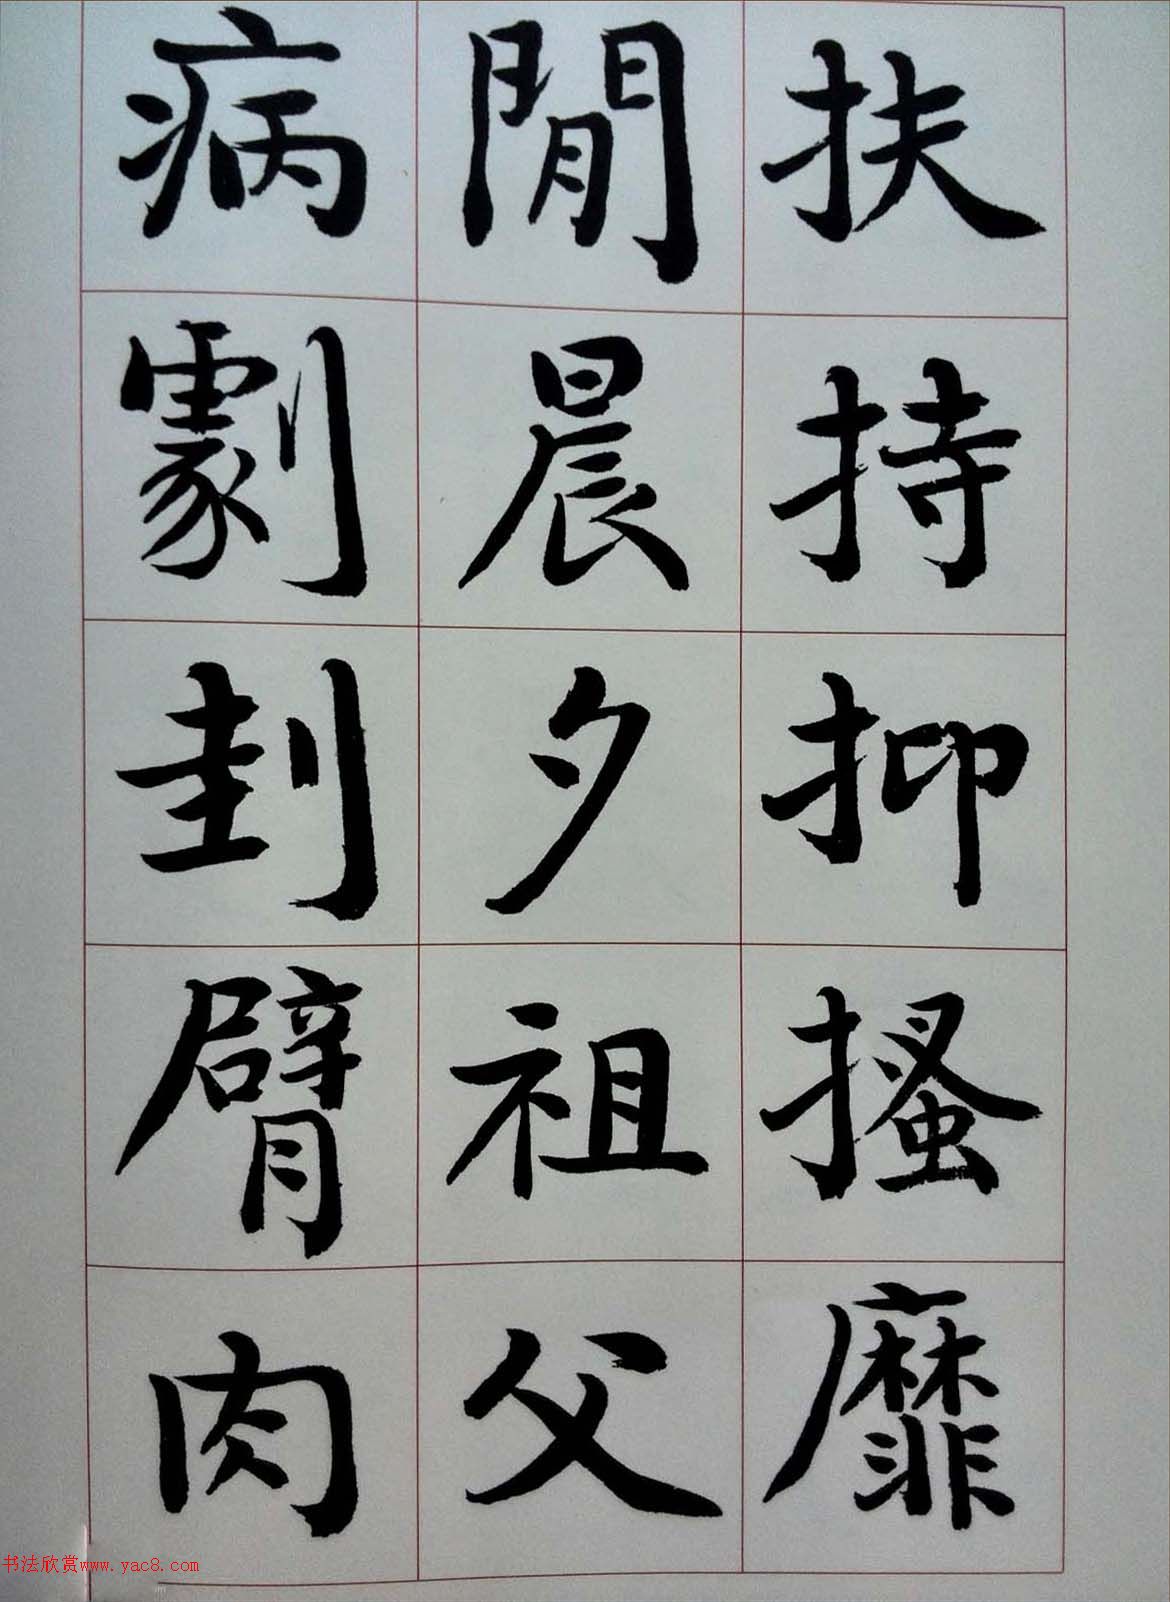 扶持抑搔靡
閒晨夕祖父
病劇刲臂肉
书法欣赏www.yac8.com